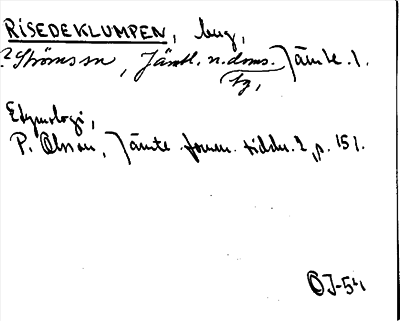 RISEDEKLUMPEN, berg,
? Ströms sn, Jämtl. n. doms. Jämtl. l.
sg,
Etymologi,
P. Olsson, Jämte fornm. tidskr. 2, p. 151.
OJ-54